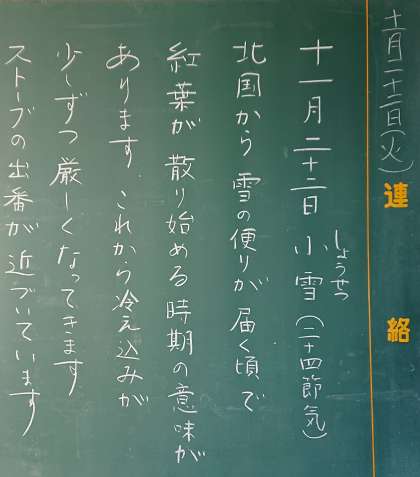 十一月二十二日(火)
連絡
十一月二十二日 小雪(二十四節気)
しょうせつ
北国から 雪の便りが 届く頃で
紅葉が 散り始める 時期の意味が
あります. これから冷え込みが
少しずつ 厳しくなってきます
ストーブの出番が 近づいています